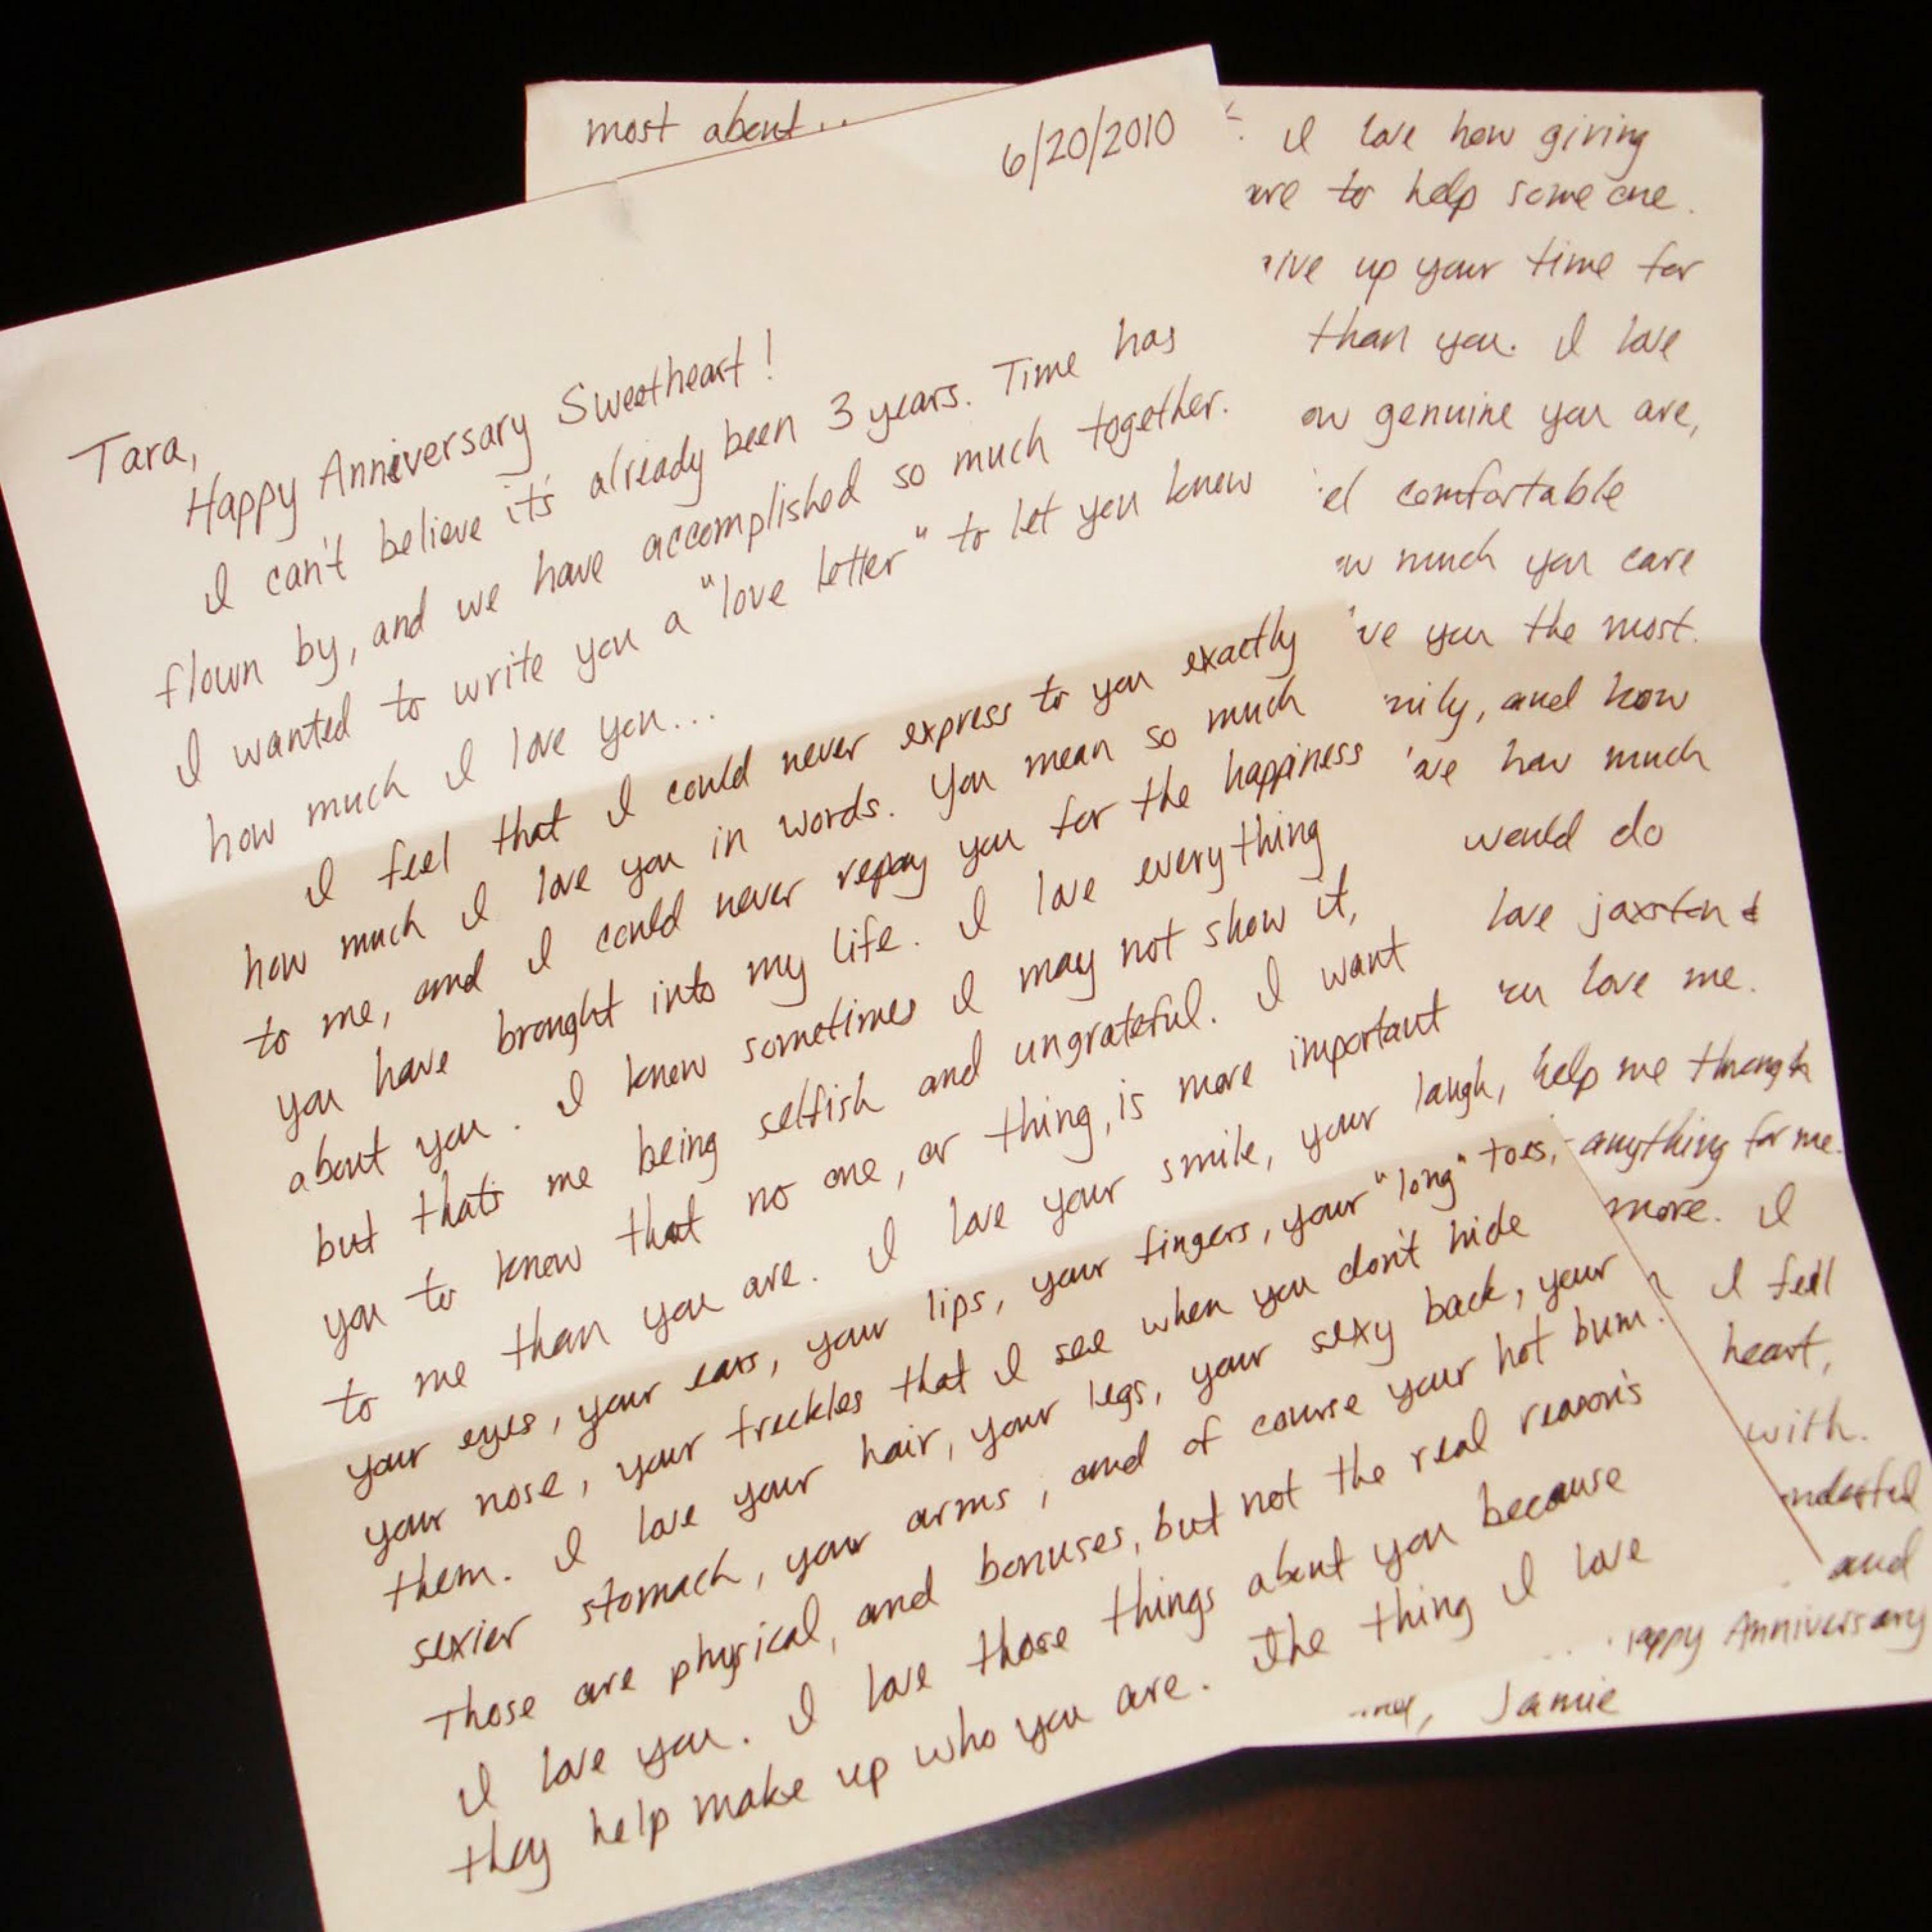 6/20/2010
Tara,
Happy Anniversary Sweetheart!
I can't believe it's already been 3 years. Time has
flown by, and we have accomplished so much together.
I wanted to write you a "love letter" to let you know
how much I love you...
I feel that I could never express to you exactly
how much I love you in words. You mean so much
to me, and I could never repay you for the happiness
you have brought into my life. I love everything
about you. I know sometimes I may not show it,
but that's me being selfish and ungrateful. I want
you to know that no one, or thing, is more important
to me than you are. I love your smile, your laugh,
your eyes, your ears, your lips, your fingers, your "long" toes,
your nose, your freckles that I see when you don't hide
them. I love your hair, your legs, your sexy back, your
sexier stomach, your arms, and of course your hot bum.
Those are physical, and bonuses, but not the real reason's
I love you. I love those things about you because
they help make up who you are. The thing I love
most about...
I love how giving
to help someone.
up your time for
than you. I love
genuine you are,
comfortable
much you care
you the most.
and how
how much
would do
love jaxston &
love me.
help me through
anything for me.
more. I
I feel
heart,
with.
and
Anniversary
Jamie